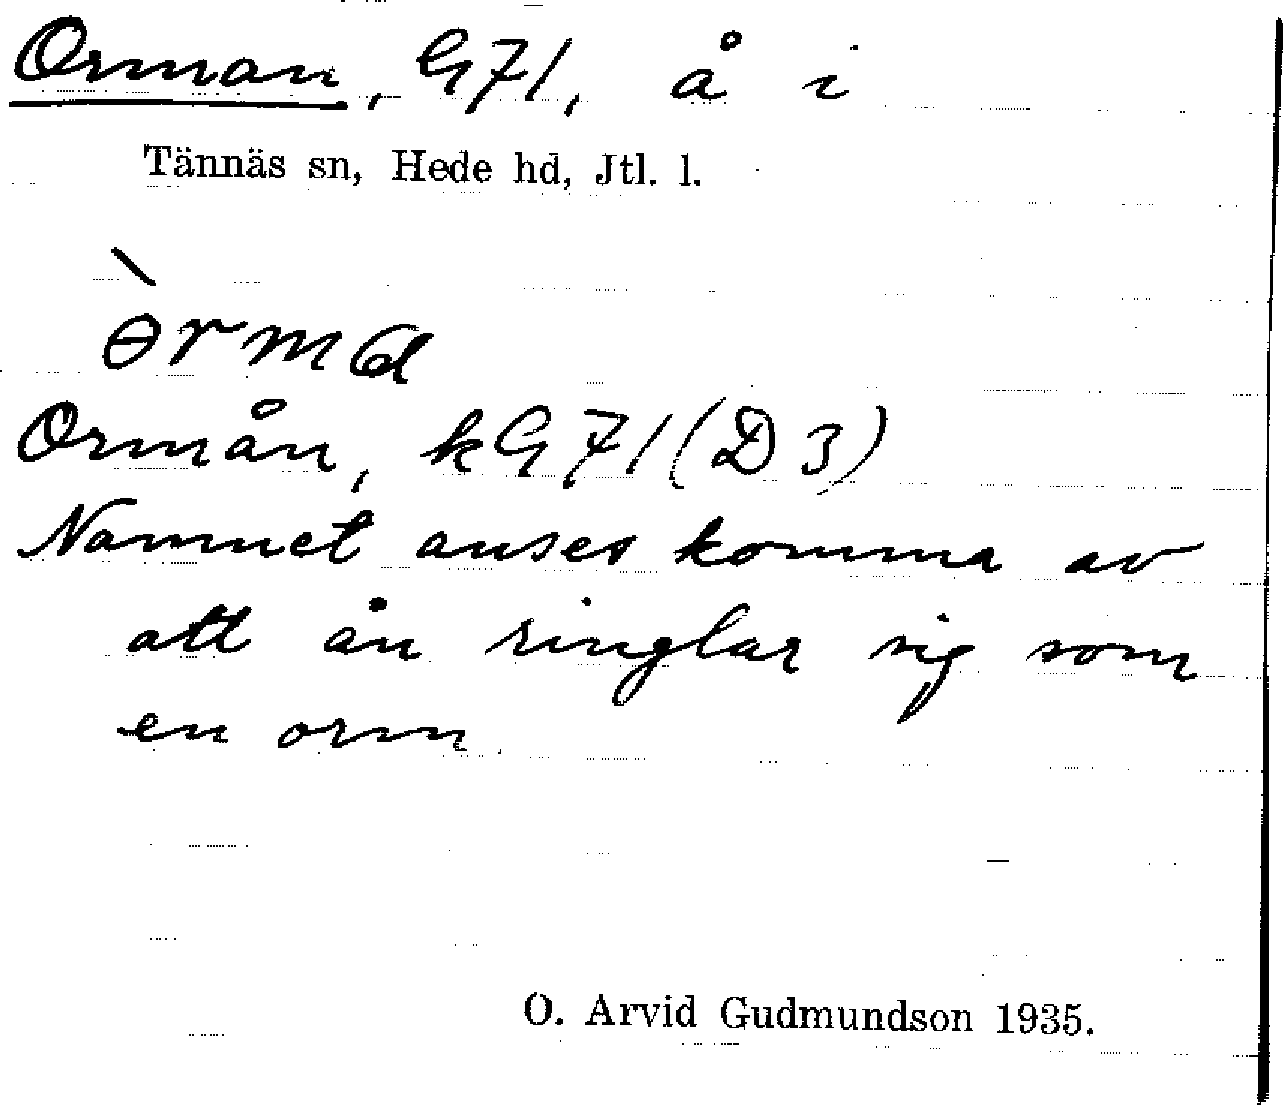 Orman, G71, å i
Tännäs sn, Hede hd, Jtl. l.
ɵ̀rmɑ
Ormån, kG71(D3)
Namnet anses komma av
att ån ringlar sig som
en orm.
O. Arvid Gudmundson 1935.